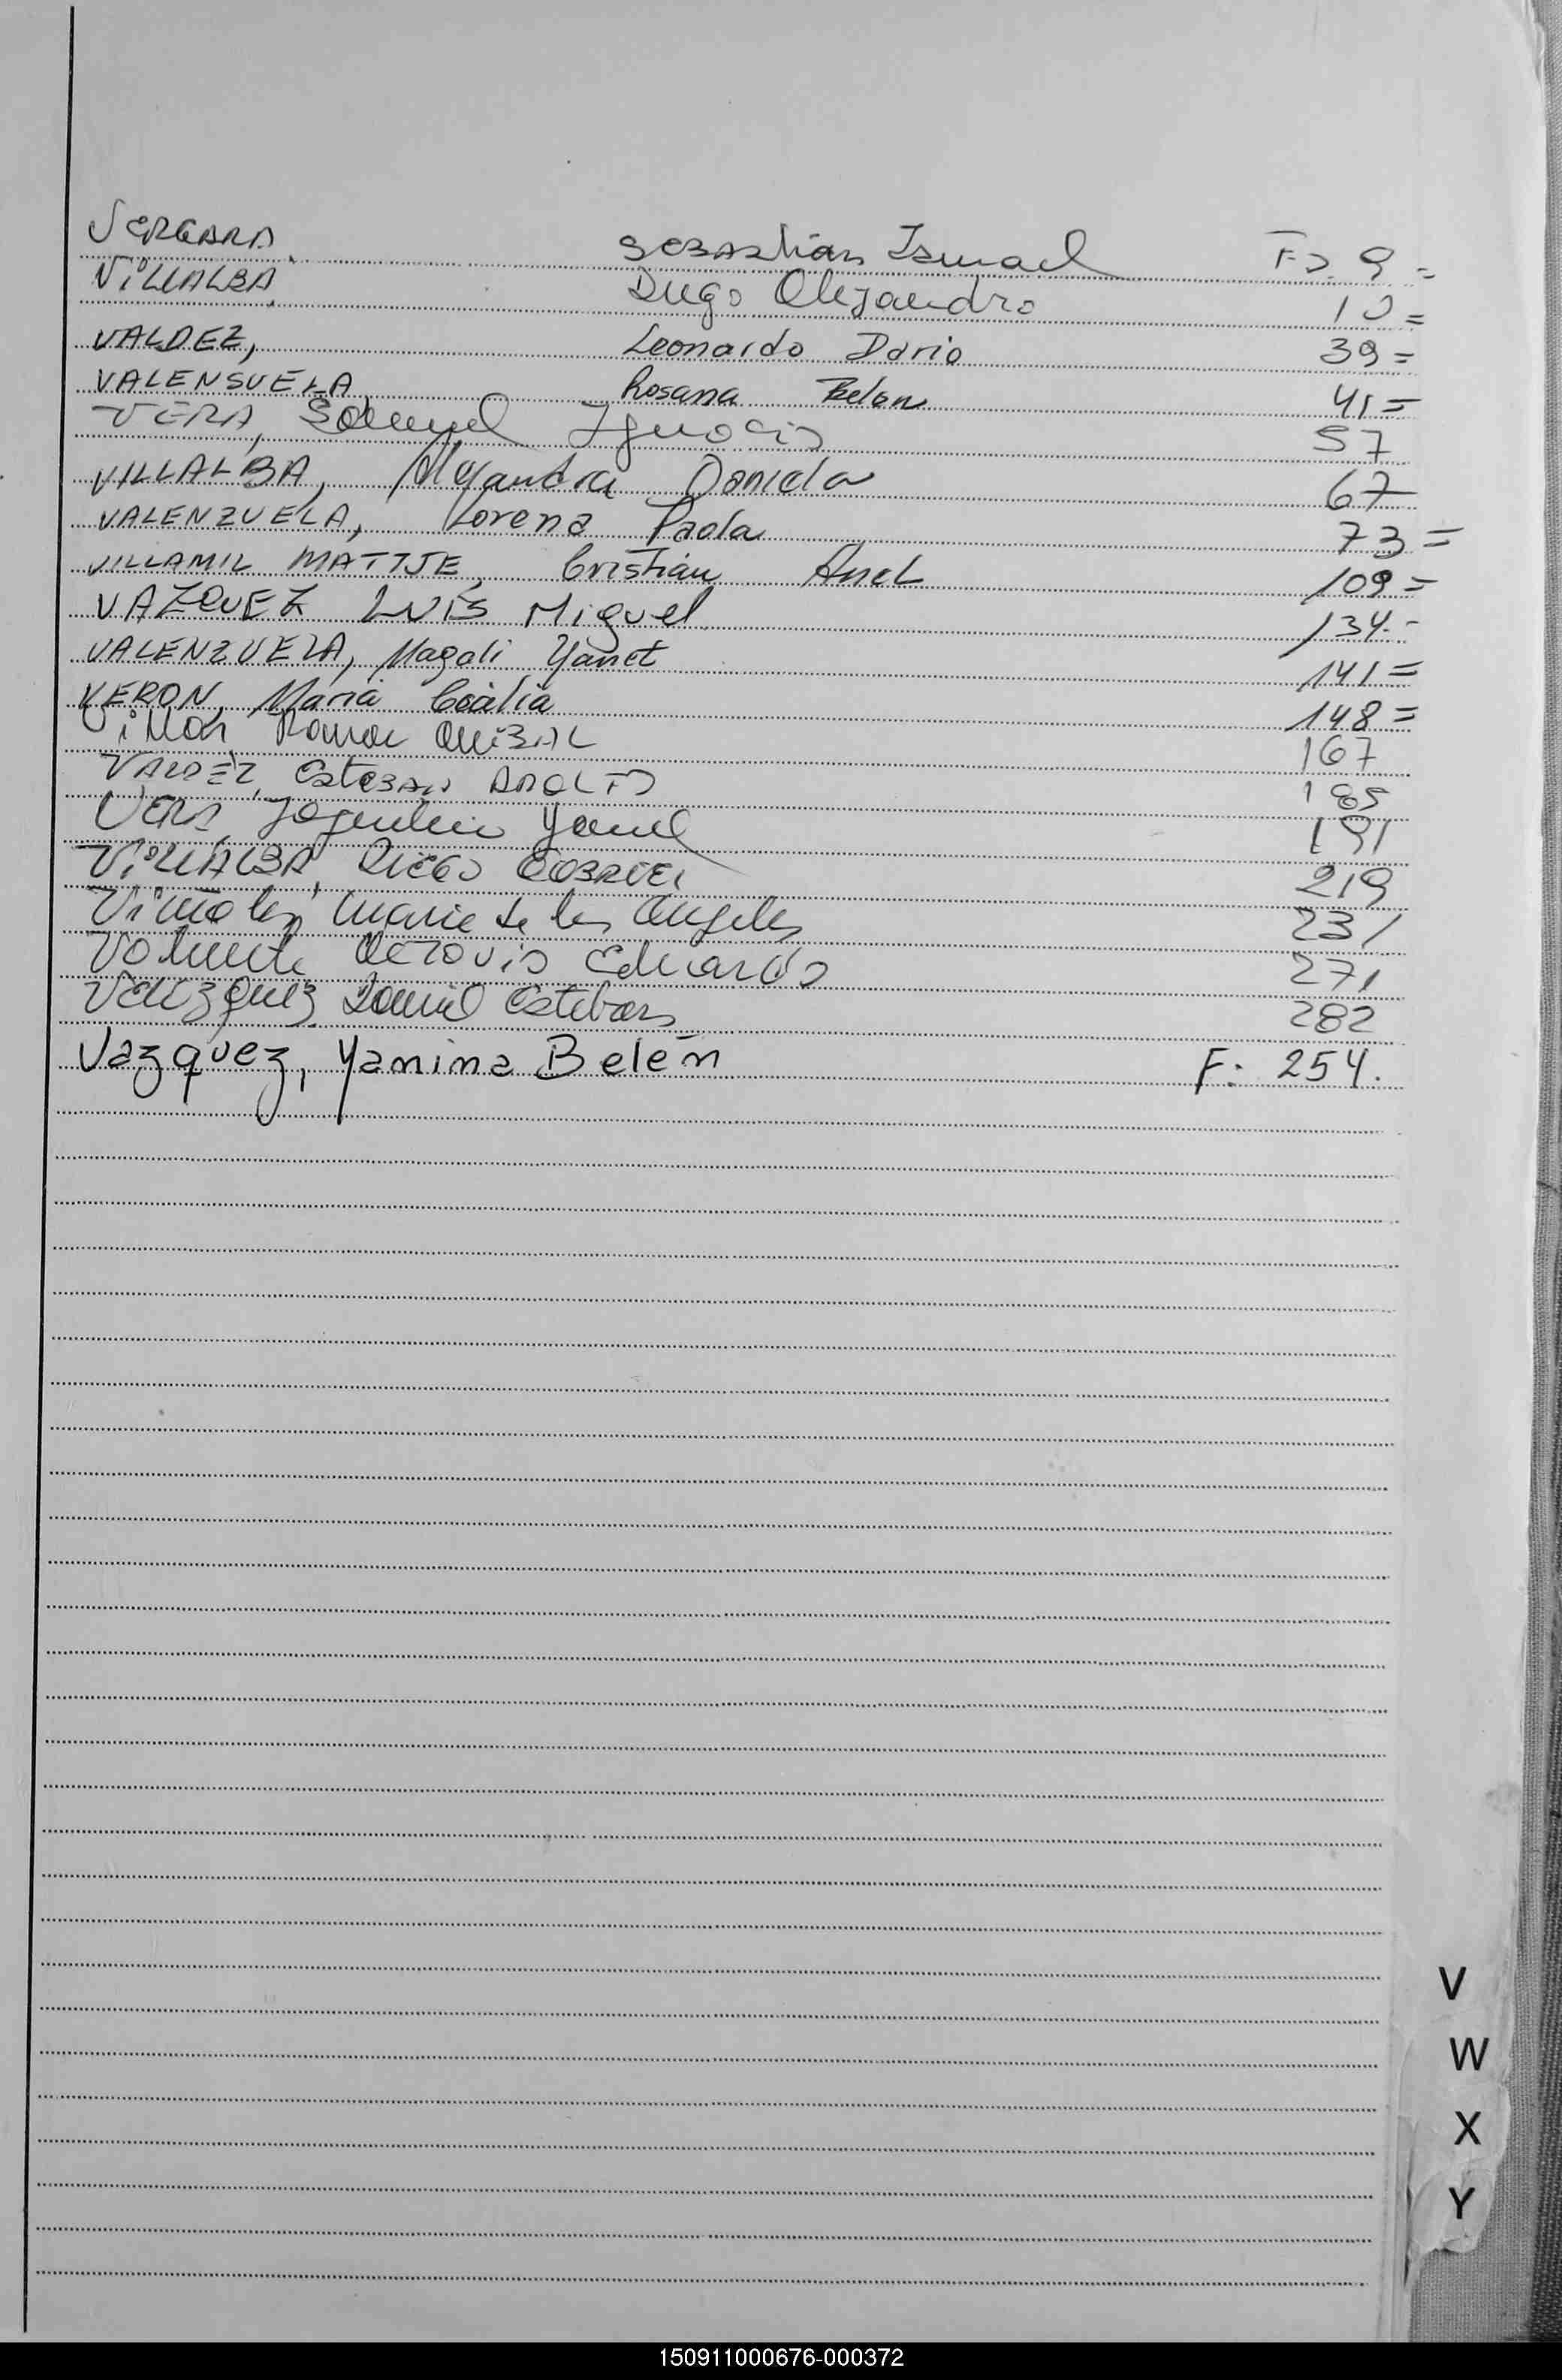 VERGARA, Sebastián Ismael Fo. 9 =
VillALBA, Diego Alejandro 10 =
VALDEZ, Leonardo Dario 39 =
VALENSUELA Rosana Belen 41 =
VERA, Samuel Ignacio 57
VILLALBA, Alejandra Daniela 67
VALENZUELA, Lorena Paola 73 =
VILLAMIL MATTJE, Cristian Ariel 109 =
VAZQUEZ LUÍS Miguel 134.-
VALENZUELA, Magali Yanet 141 =
VERON, Maria Cecilia 148 =
Villan, Ramon Anibal 167
VALDEZ, Esteban ADOLFO 185
Vera, Yamil 191
VillALBA, DIEGO GABRIEL 219
Maria de los Angeles 231
Eduardo 271
Daniel Esteban 282
Vazquez, Yanina Belén F: 254.
V
W
X
Y
150911000676-000372